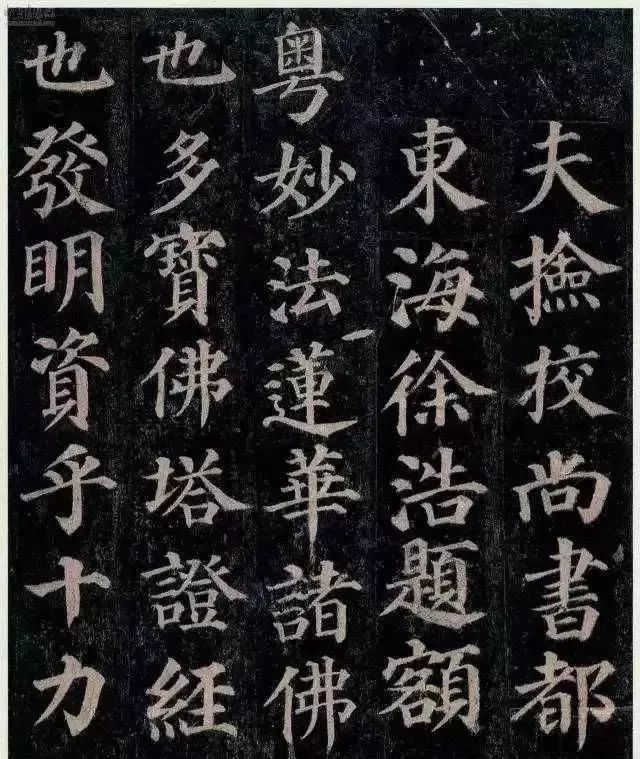 夫撿挍尚書都
東海徐浩題額
粵妙法蓮華諸佛
也多寶佛塔證經
也發明資乎十力